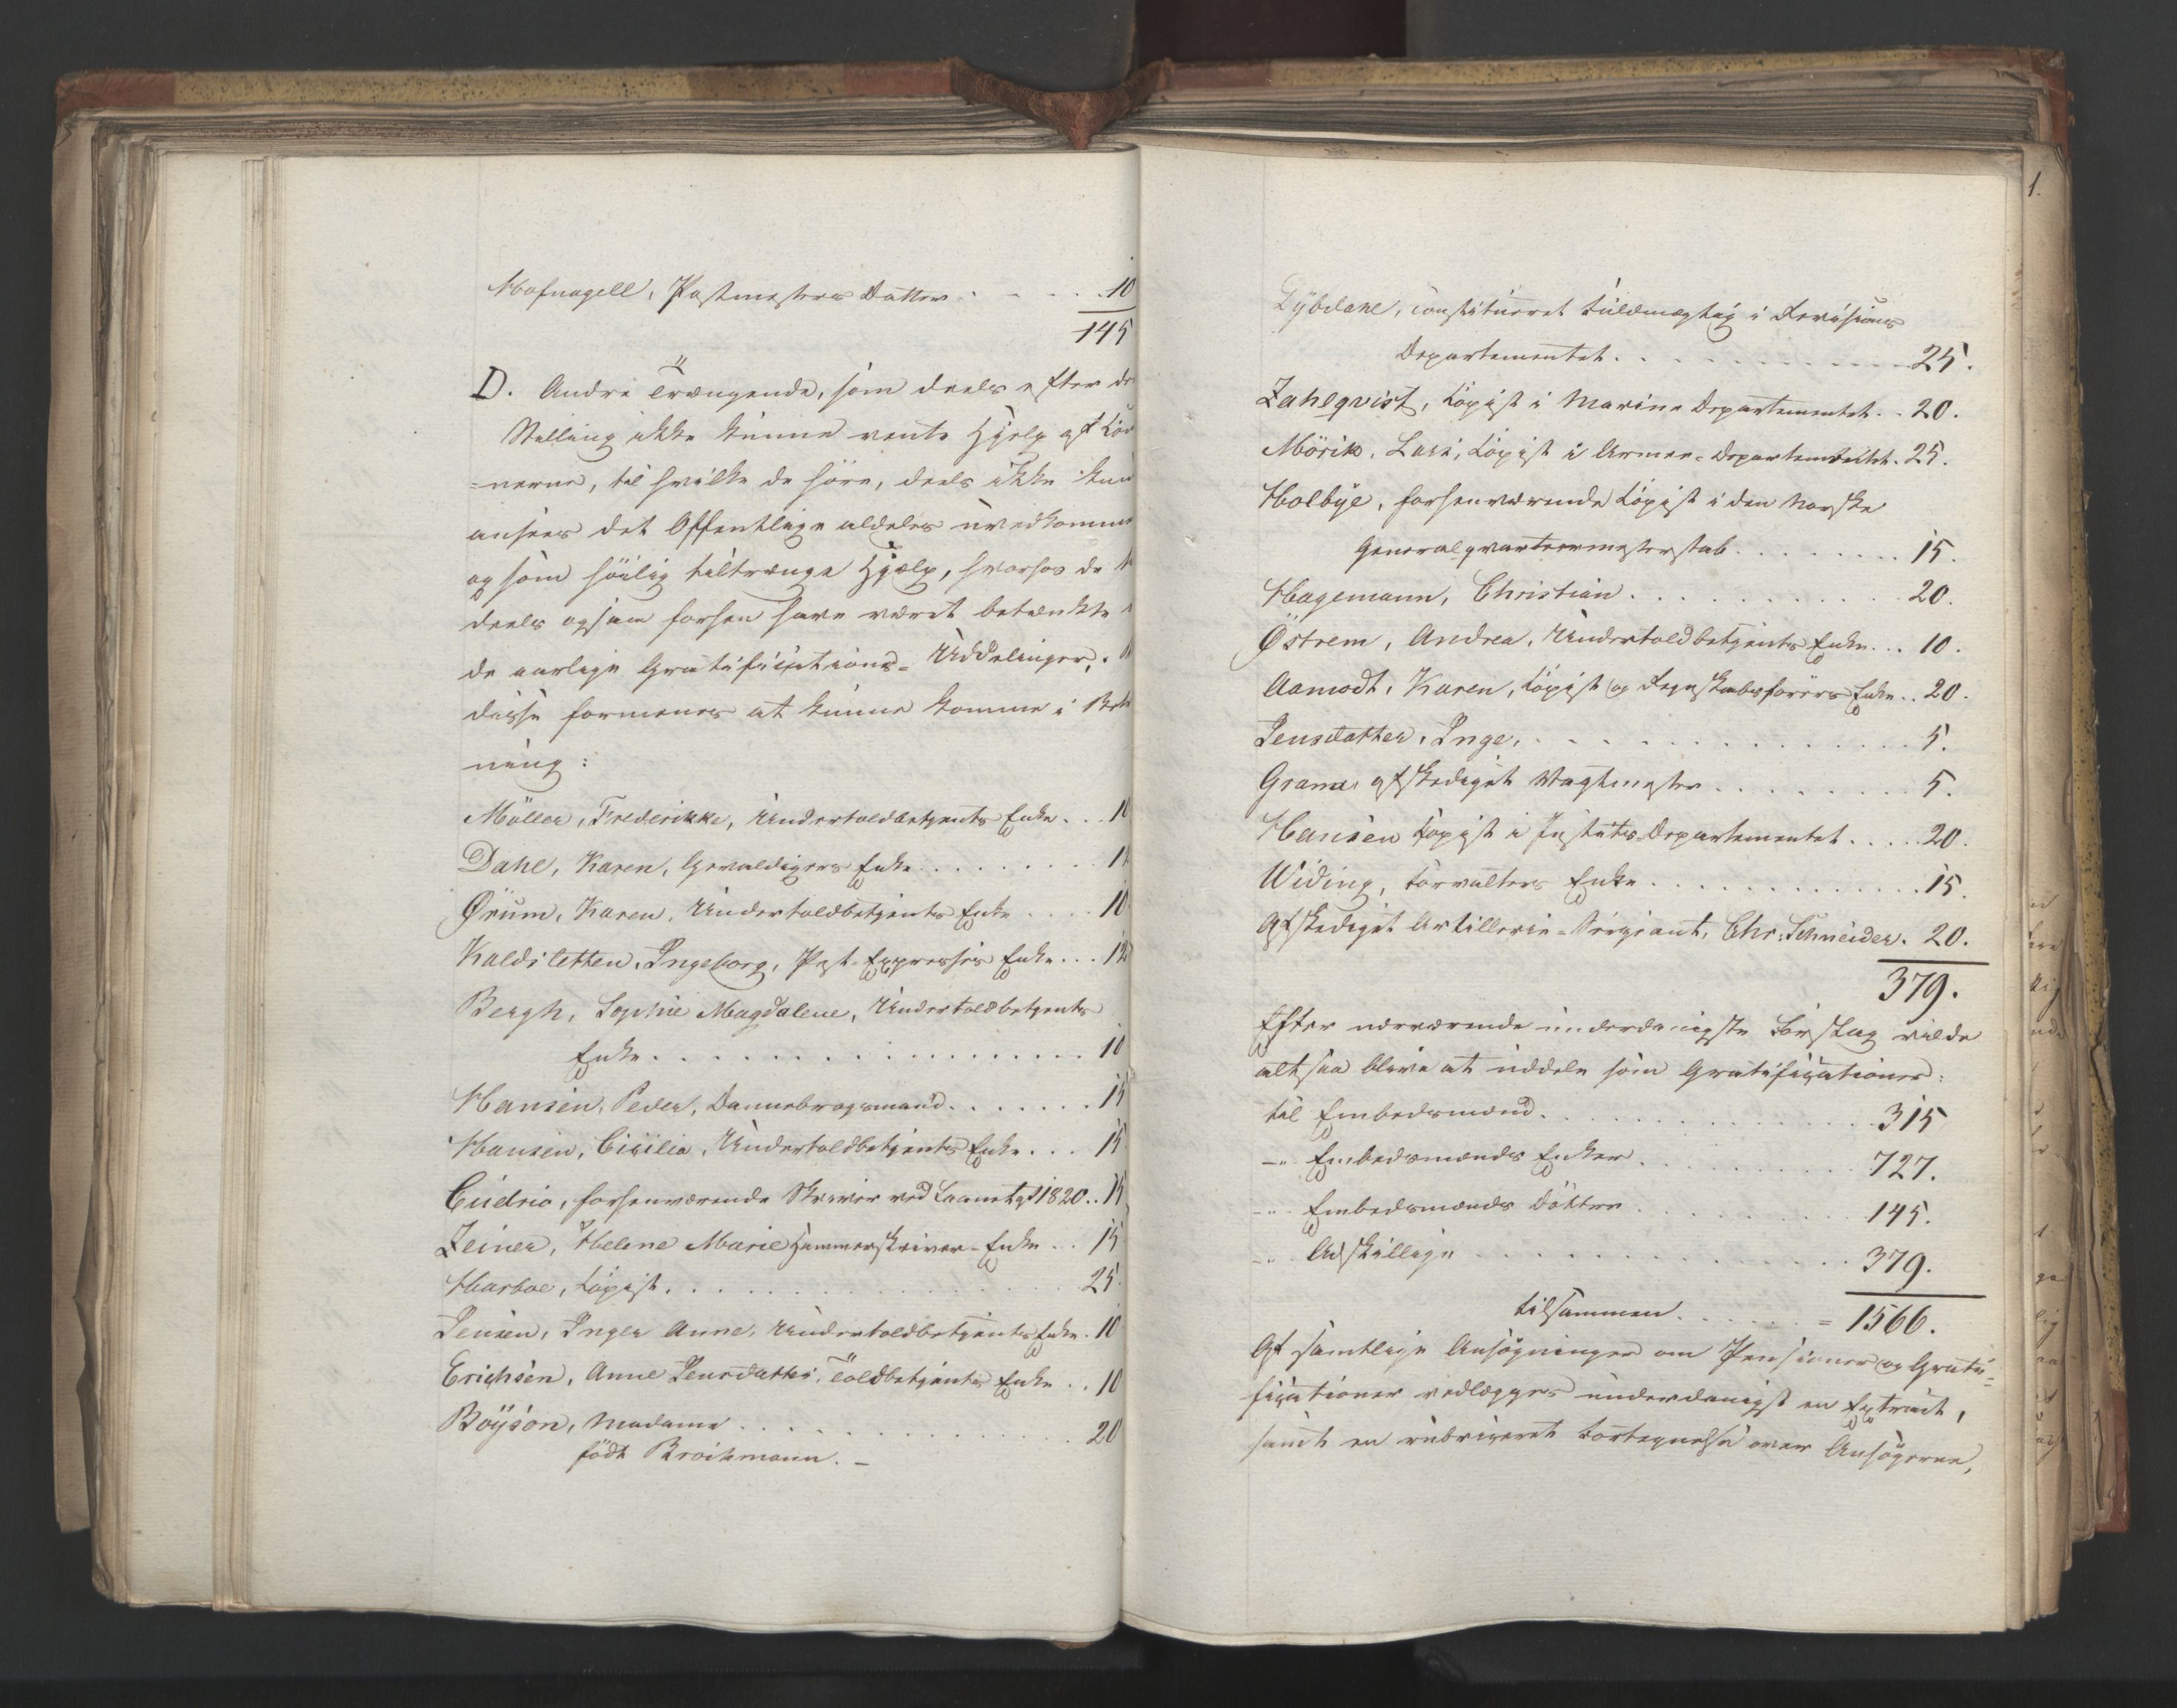 Hofnagell, Postmesters Datter . . . . . 10
145
D. Andre Trængende, som deels efter de
Stilling ikke kunne vente Hjelp af Kor
=nerne, til hvilke de höre, deels ikke kun
ansees det Offentlige aldeles uvedkomme
og som höilig tiltrænge Hjælp, hvorhos de
deels ogsaa forhen have været betænkte
de aarlige Gratifications-Uddelinger.
disse formenes at kunne komme i Bet
ning:
Möller, Frederikke, Undertoldbetjents Enke . . . 10
Dahl, Karen, Gevaldigers Enke . . . . . . . .
Örum, Karen, Undertoldbetjents Enke . . . . 10
Kaldsletten, Ingeborg, Post-Expressers Enke . . . 12
Bergh, Sophie Magdalene, Undertoldbetjents
Enke . . . . . . . . . . . . . . . . . . 10
Hansen, Peder, Dannebrogsmand . . . . . . . 15
Hansen, Cicilia, Undertoldbetjents Enke . . . 15
Cudrio, forhenværende Skriver ved Laanet af 1820 . . 15
Zeiner, Helene Marie Hammerskriver-Enke . . 15
Harboe, Copist . . . . . . . . . . . . . . 25.
Jensen, Inger Anne, Undertoldbetjents Enke . 10
Erichsen, Anne Jensdatter, Toldbetjents Enke . . 10
Boÿson, Madame . . . . . . . . . . . . 20
födt Brochmann. –
1.
Lÿbdahl, constitueret Fuldmægtig i Revisions
Departementet . . . . . . . . . . . 25.
Zahlqvist, Copist i Marine Departementet . . 20.
Mörik, Lars, Copist i Armee-Departementet . 25.
Holbÿe, forhenværende Copist i den Norske
Generalqvarteermesterstab . . . . . . . . 15.
Hagemann, Christian . . . . . . . . . . . 20.
Östrem, Andrea, Undertoldbetjents Enke . . . 10.
Aamodt, Karen, Copist og Regnskabsförers Enke . . 20.
Jensdatter, Inge, . . . . . . . . . . . . . . 5.
Gram, afskediget Vagtmester . . . . . . . . 5.
Hansen Copist i Justits-Departementet . . . . 20.
Widing, Forvalters Enke . . . . . . . . . . . . 15.
Afskediget Artillerie-Sergeant, Chr. Schneider . 20.
379.
Efter nærværende underdanigste Forslag vilde
altsaa blive at uddele som Gratificationer:
til Embedsmænd . . . . . . . . . . . . . 315
–" Embedsmænds Enker . . . . . . . . . 727.
–" Embedsmænds Döttre . . . . . . . . . 145.
–" Adskillige . . . . . . . . . . . . . . . 379.
tilsammen . . . . . . = 1566.
Af samtlige Ansögninger om Pensioner og Grati=
ficationer vedlægges underdanigst en Extract,
samt en rubriceret Fortegnelse over Ansögerne,